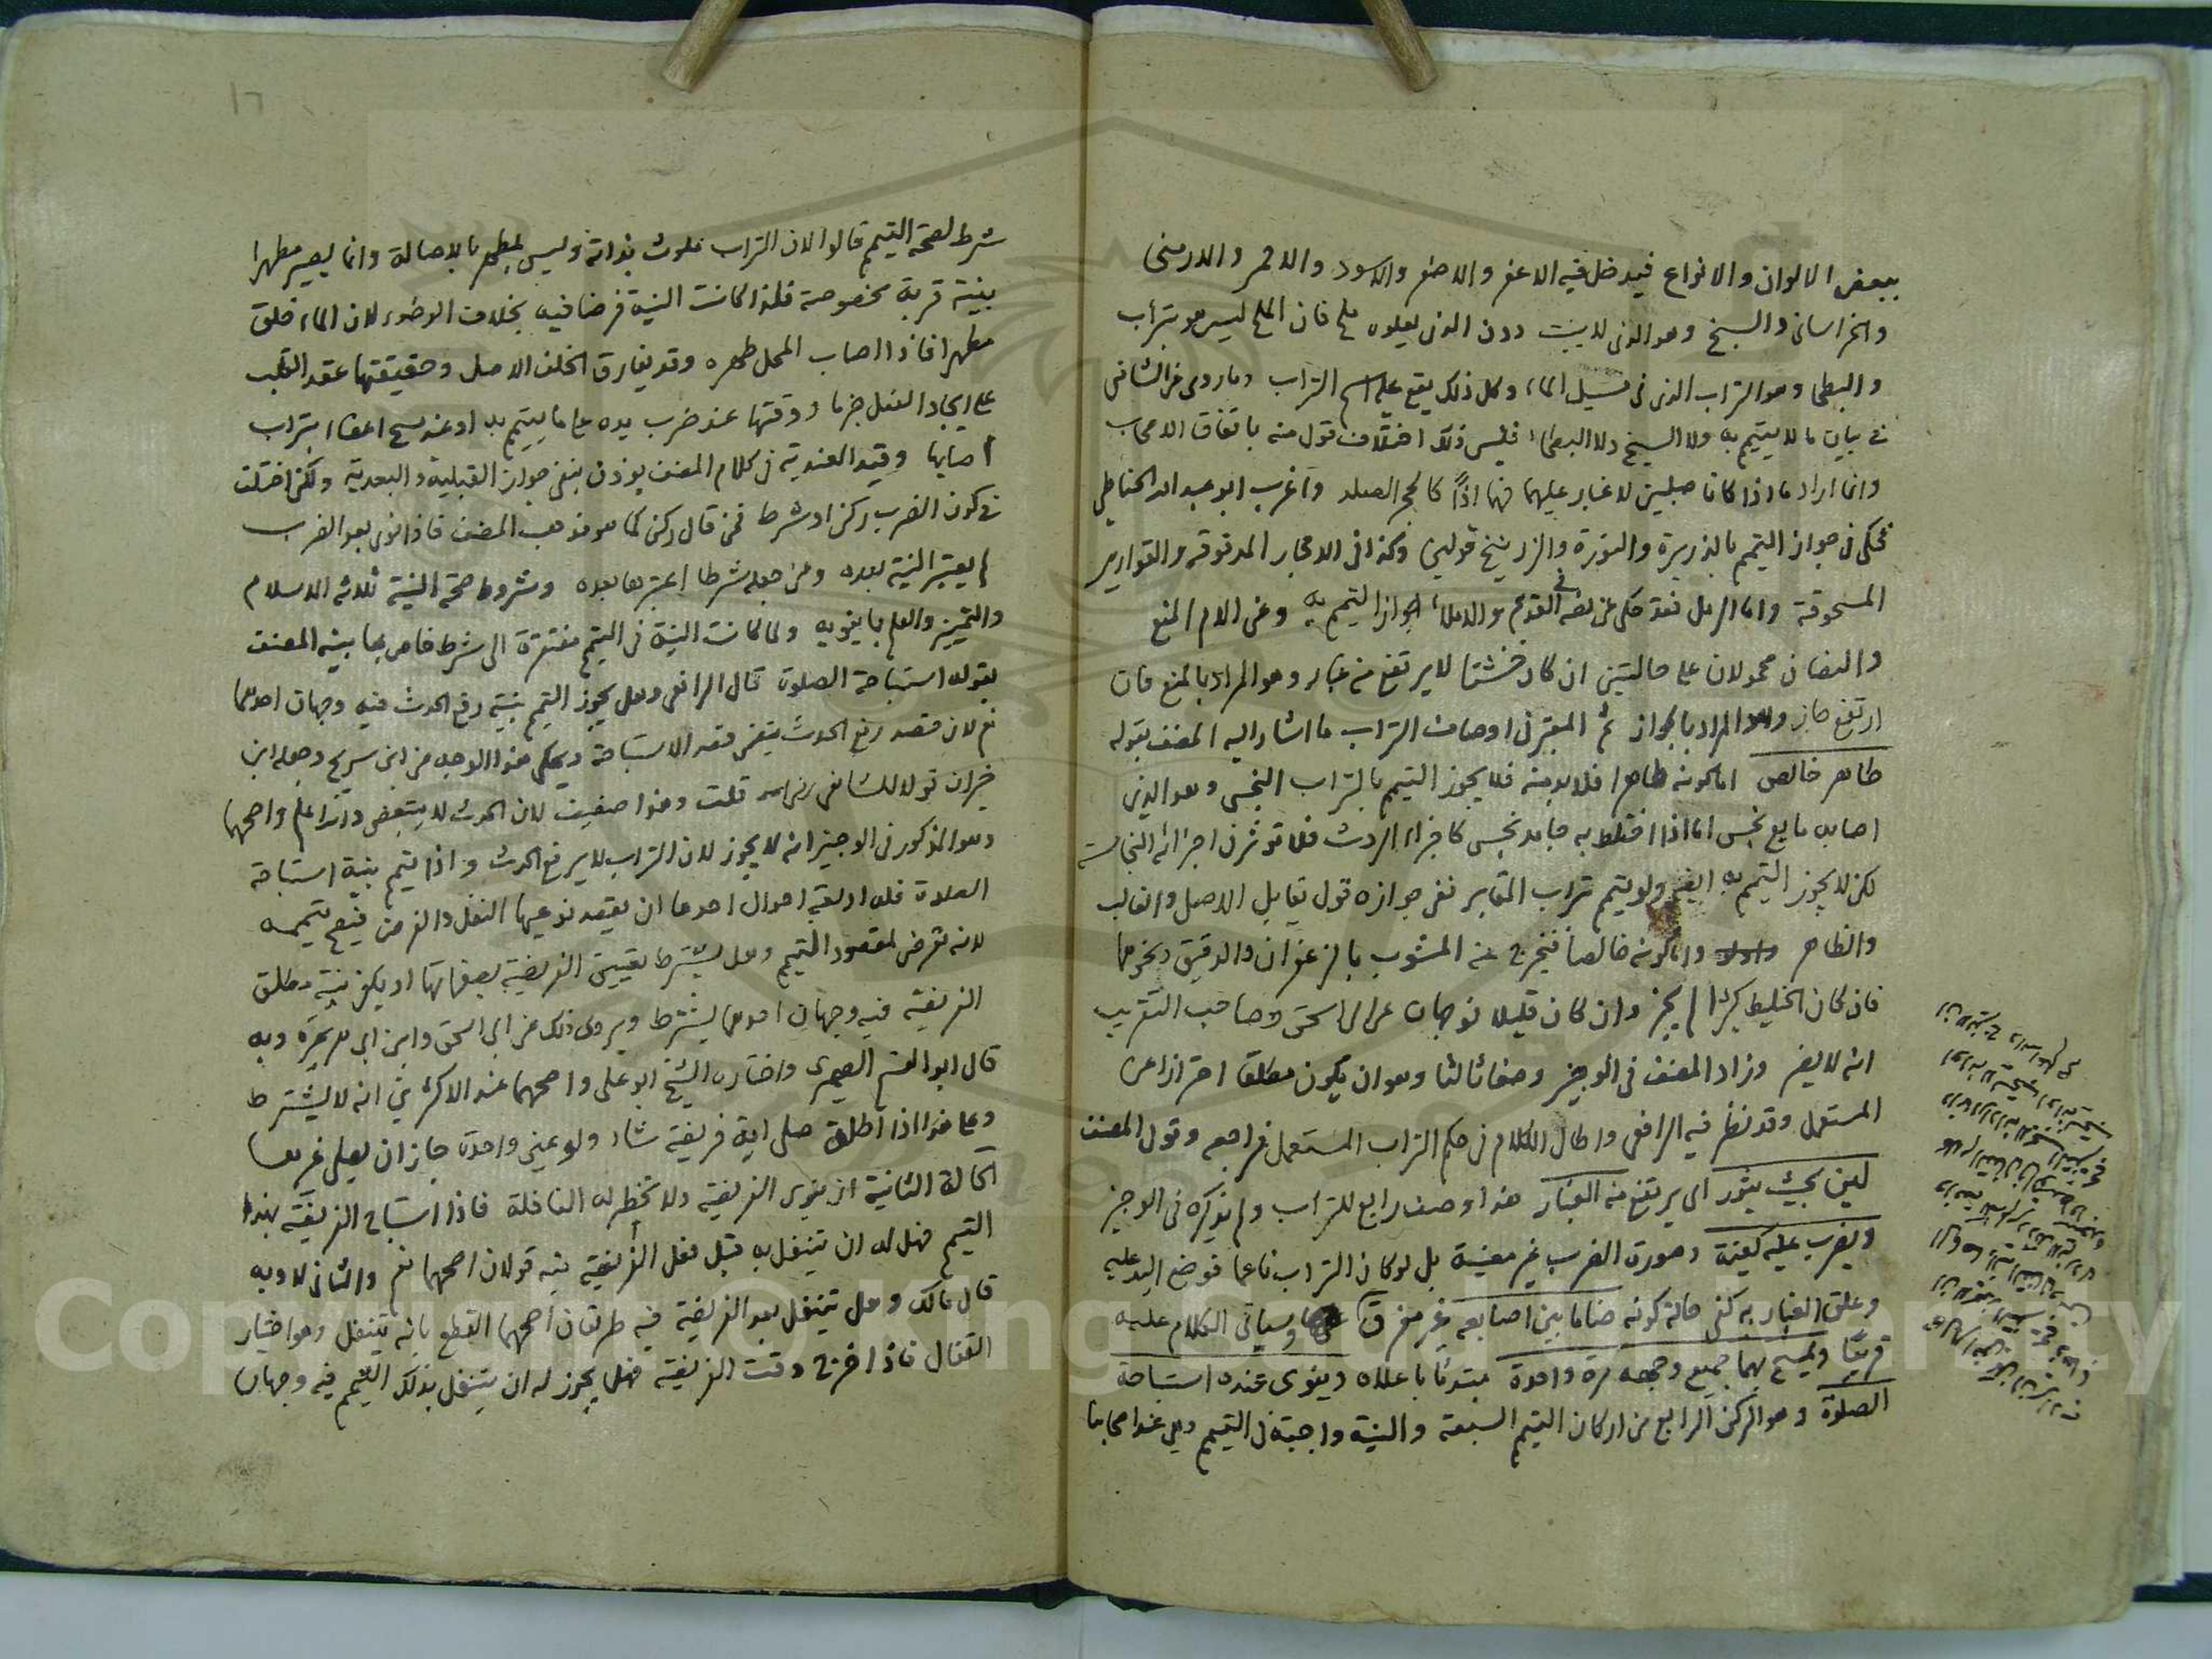 ببعض الالوان والانواع فيدخل فيه الاعفر والاصفر والاسود والاحمر والارمنى
والخراسانى والسبخ وهو الذى لا ينبت دون الذى يعلوه ملح فان الملح ليس هو بتراب
والبطحا وهو التراب الذى فى مسيل الماء وكل ذلك يقع عليه اسم التراب وما روى عن الشافعى
فى بيان ما لا يتيمم به ولا السبخ ولا البطحاء فليس ذلك اختلاف قول منه باتفاق الاصحاب
وانما اراد ما اذا كانا صلبين لا غبار عليهما فهما اذًا كالحجر الصلد واغرب ابو عبد الله الحناطى
فحكى فى جواز التيمم بالذريرة والنورة والزرنيخ قولين وكذا فى الاحجار المدقوقه والقوارير
المسحوقة واما الرمل فقد حكى عن نصه فى القديم والاملاء جواز التيمم به وعن الام المنع
والنصان محمولان على حالتين ان كان خشنا لا يرتفع منه غبار وهو المراد بالمنع فان
ارتفع جاز وهو المراد بالجواز ثم المعتبر فى اوصاف التراب ما اشار اليه المصنف بقوله
طاهر خالص اما كونه طاهرا فلا بد منه فلا يجوز التيمم بالتراب النجس وهو الذى
اصابه مايع نجس اما اذا اختلط به جامد نجس كاجزاء الروث فلا تؤثر فى اجزائه النجاسة
لكن لا يجوز التيمم به ايضا ولو تيمم بتراب المقابر ففى جوازه قول تقابل الاصل والغالب
والظاهر واما كونه خالصا فيخرج عنه المشوب بالزعفران والدقيق ونحوهما
فان كان الخليط كثيرا لم يجز وان كان قليلا فوجهان عن ابى اسحق وصاحب التقريب
انه لا يضر وزاد المصنف فى الوجيز وصفا ثالثا وهو ان يكون مطلقا احترازا عن
المستعمل وقد نظر فيه الرافعى واطال الكلام فى حكم التراب المستعمل فراجعه وقول المصنف
لين بحيث يثور اى يرتفع منه الغبار هذا وصف رابع للتراب ولم يذكره فى الوجيز
ويضرب عليه كفيه وصورة الضرب غير معينة بل لو كان التراب ناعما فوضع اليد عليه
وعلق الغبار به كفى حالة كونه ضاما بين اصابعه غير مفرق وسياتى الكلام عليه
قريبا ويمسح بهما جميع وجهه مرة واحدة مبتدئا باعلاه وينوى عنده استباحة
الصلوة وهو الركن الرابع من اركان التيمم السبعة والنية واجبة فى التيمم وهى عند اصحابنا
١٦
شرط لصحة التيمم قالوا لان التراب ملوث بذاته وليس بمطهر بالاصالة وانما يصير مطهرا
بنية قربة مخصوصة فلذا كانت النية فرضا فيه بخلاف الوضوء لان الماء خلق
مطهرا فاذا اصاب المحل طهره وقد يفارق الخلف الاصل وحقيقتها عقد القلب
على ايجاد الفعل جزما ووقتها عند ضرب يده على ما يتيمم به او عند مسح اعضاء بتراب
اصابها وقيد العندية فى كلام المصنف يؤذن بنفى جواز القبلية والبعدية ولكن اختلف
فى كون الضرب ركن او شرط فمن قال ركن كما هو مذهب المصنف فاذا نوى بعد الضرب
لم يعتبر النية بعده ومن جعله شرطا اعتبرها بعده وشروط صحة النية ثلاثة الاسلام
والتمييز والعلم بما ينويه ولما كانت النية فى التيمم مفتقرة الى شرط خاص بها بينه المصنف
بقوله استباحة الصلوة قال الرافعى وهل يجوز التيمم بنية رفع الحدث فيه وجهان احدهما
نعم لان قصد رفع الحدث يتضمن قصد الاستباحة ويحكى هذا الوجه عن ابن سريج وجعله ابن
خيران قولا للشافعى رضى الله قلت وهذا ضعيف لان الحدث لا يتبعض والله اعلم واصحهما
وهو المذكور فى الوجيز انه لا يجوز لان التراب لا يرفع الحدث واذا تيمم بنية استباحة
الصلاة فله اربعة احوال احدها ان يقصد نوعيها النفل والفرض فيصح تيممه
لانه تعرض لمقصود التيمم وهل يشترط تعيين الفريضة بصفاتها او يكفى نية مطلق
الفريضة فيه وجهان احدهما يشترط ويروى ذلك عن ابى اسحق وابن ابى هريرة وبه
قال ابو القسم الصيمرى واختاره الشيخ ابو على واصحهما عند الاكثرين انه لا يشترط
وعلى هذا اذا اطلق صلى اية فريضة شاء ولو عين واحدة جاز ان يصلى غيرها
الحالة الثانية ان ينوى الفريضة ولا تخطر له النافلة فاذا استباح الفريضة بهذا
التيمم فهل له ان يتنفل به قبل فعل الفريضة فيه قولان اصحهما نعم والثانى لا وبه
قال مالك وهل يتنفل بعد الفريضة فيه طريقان اصحهما القطع بانه يتنفل وهو اختيار
القفال فاذا خرج وقت الفريضة فهل يجوز له ان يتنفل بذلك التيمم فيه وجهان
Copyright © King Saud University